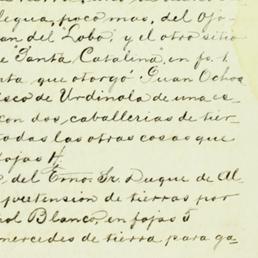 legua, poco mas, del Ojo
an del Lobo; y el otro sitio
e "Santa Catalina", en fs. 1
nta, que otorgó Juan Ochoa
isco de Urdinola de una es-
con dos caballerias de tier
todas las otras cosas que
fojas 14
, del Exmo. Sr. Duque de Al
pretension de tierras por
ol Blanco, en fojas 5
mercedes de tierra para ga-